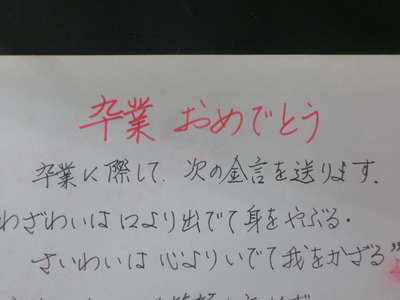 卒業 おめでとう
卒業に際して、次の金言を送ります.
わざわいは口より出でて身をやぶる・
さいわいは心よりいでて我をかざる”